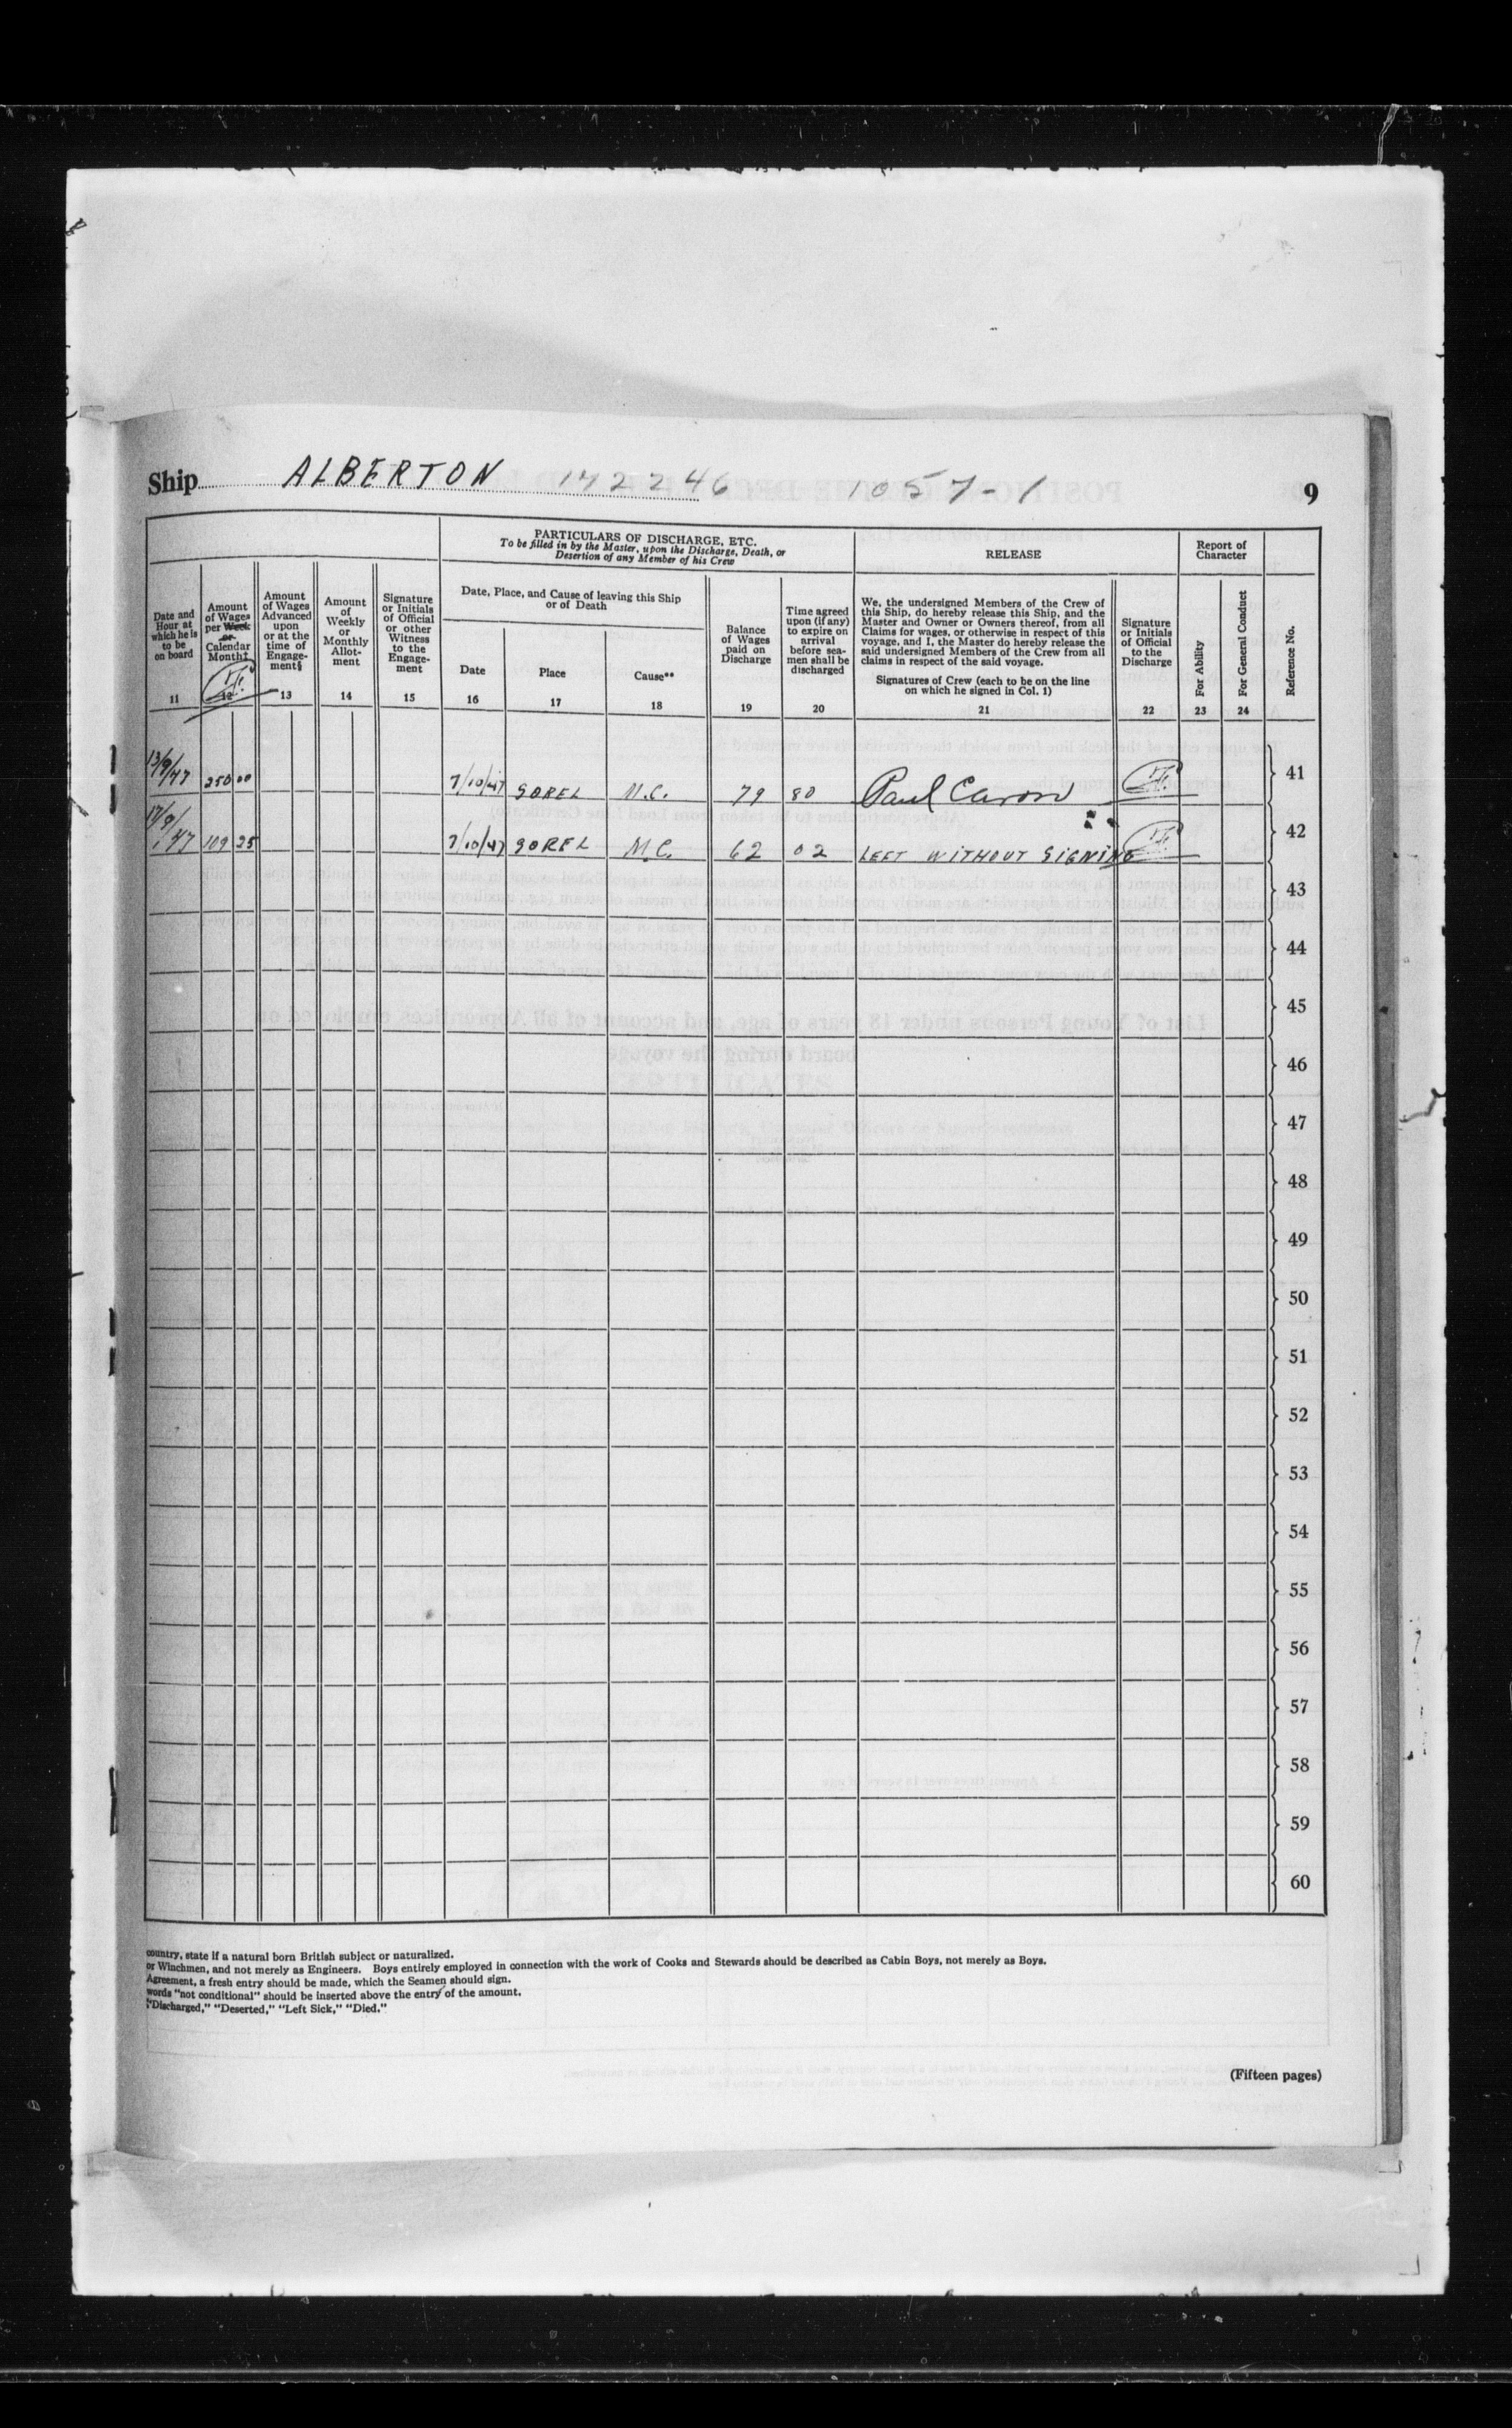 Ship ALBERTON 172246 1057-1 9
PARTICULARS OF DISCHARGE, ETC.
To be filled in by the Master, upon the Discharge, Death, or
Desertion of any Member of his Crew
RELEASE
Report of
Character
Date and
Hour at
which he is
to be
on board
11
Amount
of Wages
per Week
or
Calendar
Month‡
12
Amount
of Wages
Advanced
upon
or at the
time of
Engage-
ment§
13
Amount
of
Weekly
or
Monthly
Allot-
ment
14
Signature
or Initials
of Official
or other
Witness
to the
Engage-
ment
15
Date, Place, and Cause of leaving this Ship
or of Death
Date
16
Place
17
Cause**
18
Balance
of Wages
paid on
Discharge
19
Time agreed
upon (if any)
to expire on
arrival
before sea-
men shall be
discharged
20
We, the undersigned Members of the Crew of
this Ship, do hereby release this Ship, and the
Master and Owner or Owners thereof, from all
Claims for wages, or otherwise in respect of this
voyage, and I, the Master do hereby release the
said undersigned Members of the Crew from all
claims in respect of the said voyage.
Signatures of Crew (each to be on the line
on which he signed in Col. 1)
21
Signature
or Initials
of Official
to the
Discharge
22
For Ability
23
For General Conduct
24
Reference No.
13/9/47 250 00 7/10/47 SOREL M.C. 79 80 Paul Caron 41
17/9/47 109 25 7/10/47 SOREL M.C. 62 02 LEFT WITHOUT SIGNING 42
43
44
45
46
47
48
49
50
51
52
53
54
55
56
57
58
59
60
country, state if a natural born British subject or naturalized.
or Winchmen, and not merely as Engineers. Boys entirely employed in connection with the work of Cooks and Stewards should be described as Cabin Boys, not merely as Boys.
Agreement, a fresh entry should be made, which the Seamen should sign.
words "not conditional" should be inserted above the entry of the amount.
"Discharged," "Deserted," "Left Sick," "Died."
(Fifteen pages)